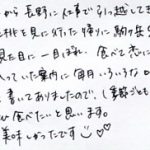 から長野に仕事で引っ越してき
桜を見に行った帰りに駒ヶ岳
見た目に一目ぼれ、食べて恋に
入っていた案内に毎月いろいろな
書いてありましたので、(季節ごと
び食べたいと思います。
美味しかったです♡